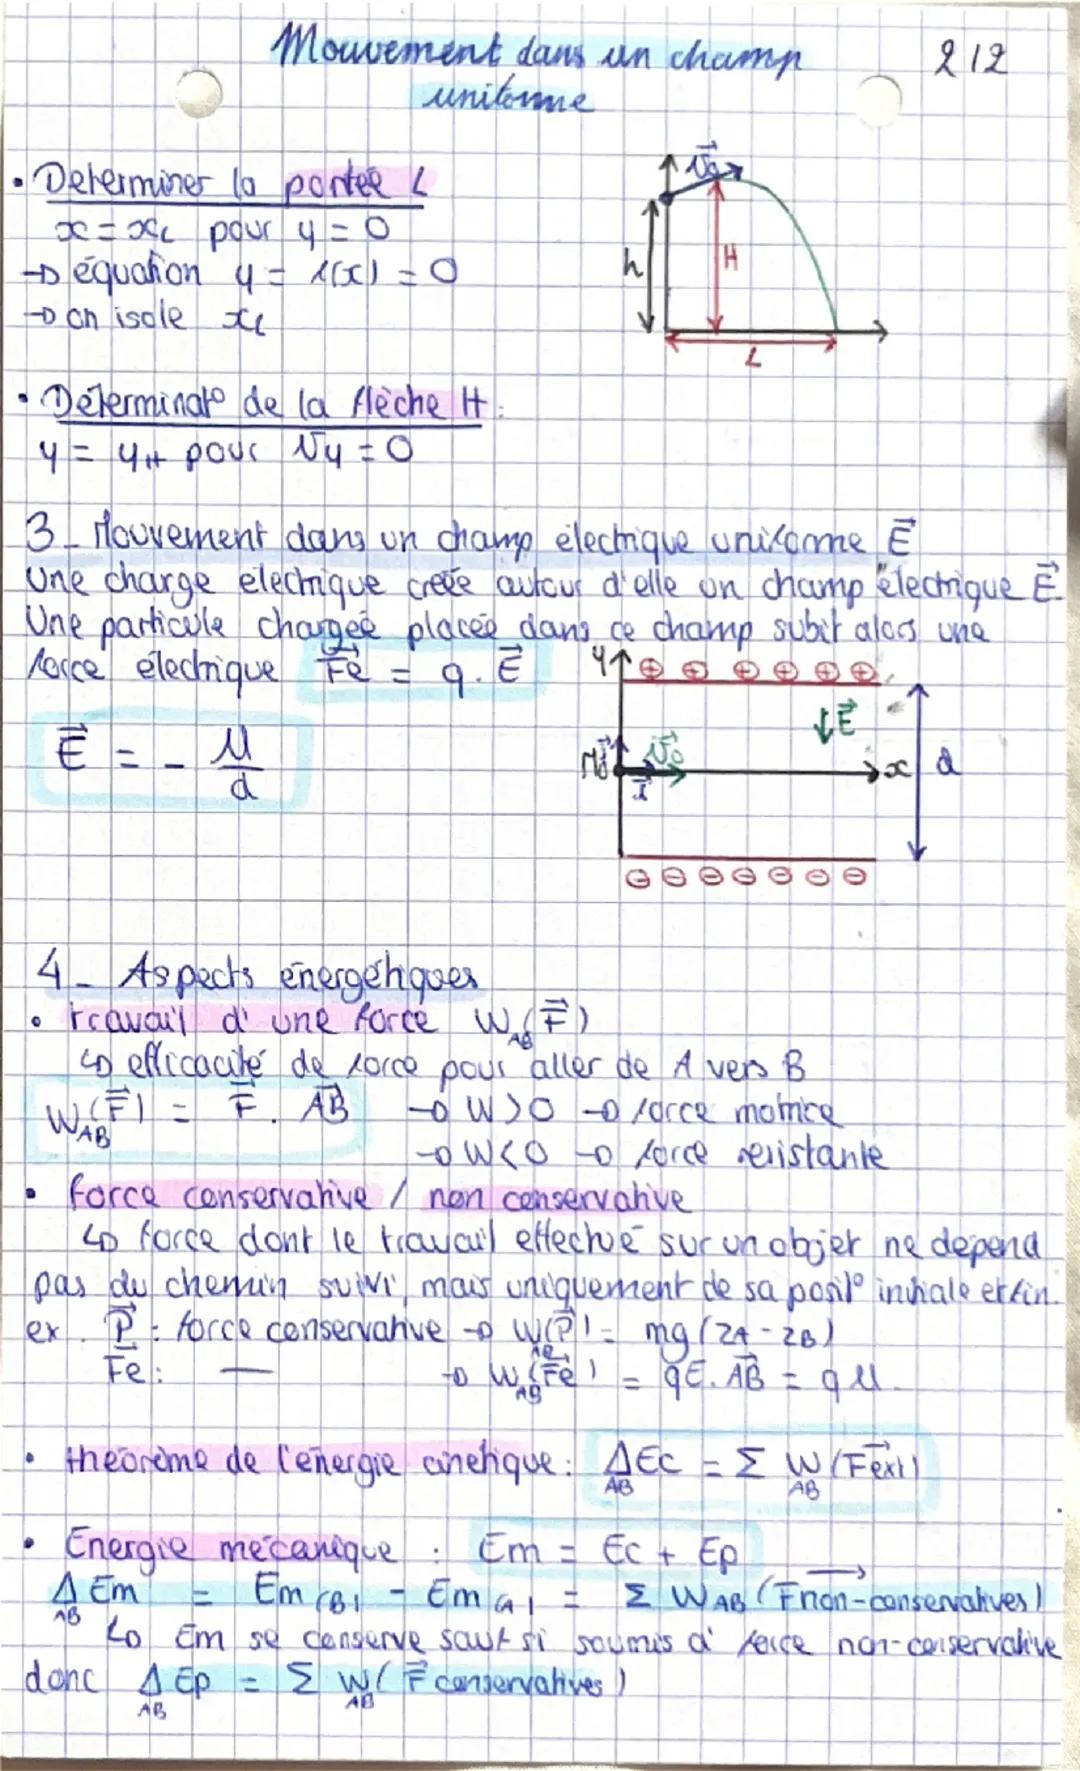 Mouvement dans un champ 2/2
uniforme
• Determiner la portée L
x = xL pour y = 0
→ équation y = f(x) = 0
→ on isole xL
V0
h
H
L
• Déterminat° de la flèche H :
y = yH pour Vy = 0
3_ Mouvement dans un champ électrique uniforme E⃗
Une charge electrique creée autour d'elle un champ électrique E⃗.
Une particule chargée placée dans ce champ subit alors une
force électrique F⃗e = q . E⃗
y ⊕ ⊕ ⊕ ⊕ ⊕ ⊕
↓E⃗
E⃗ = - U/d
V⃗0
x d
i⃗
⊖ ⊖ ⊖ ⊖ ⊖ ⊖ ⊖
4_ Aspects énergétiques
• travail d'une force WAB(F⃗)
↳ efficacité de force pour aller de A vers B
WAB(F⃗) = F⃗ . AB⃗ → W>0 → force motrice
→ W<0 → force resistante
• force conservative / non conservative
↳ force dont le travail effectué sur un objet ne dépend
pas du chemin suivi, mais uniquement de sa posit° initiale et fin.
ex . P⃗ : force conservative → WAB(P⃗) = mg(zA - zB)
F⃗e : — → WAB(F⃗e) = qE⃗.AB⃗ = qU.
• théorème de l'énergie cinétique : ΔABEc = Σ WAB(F⃗ext)
• Energie mécanique : Em = Ec + Ep
ΔABEm = Em(B) - Em(A) = Σ WAB(F⃗non-conservatives)
↳ Em se conserve sauf si soumis à force non-conservative
donc ΔABEp = Σ WAB(F⃗ conservatives)